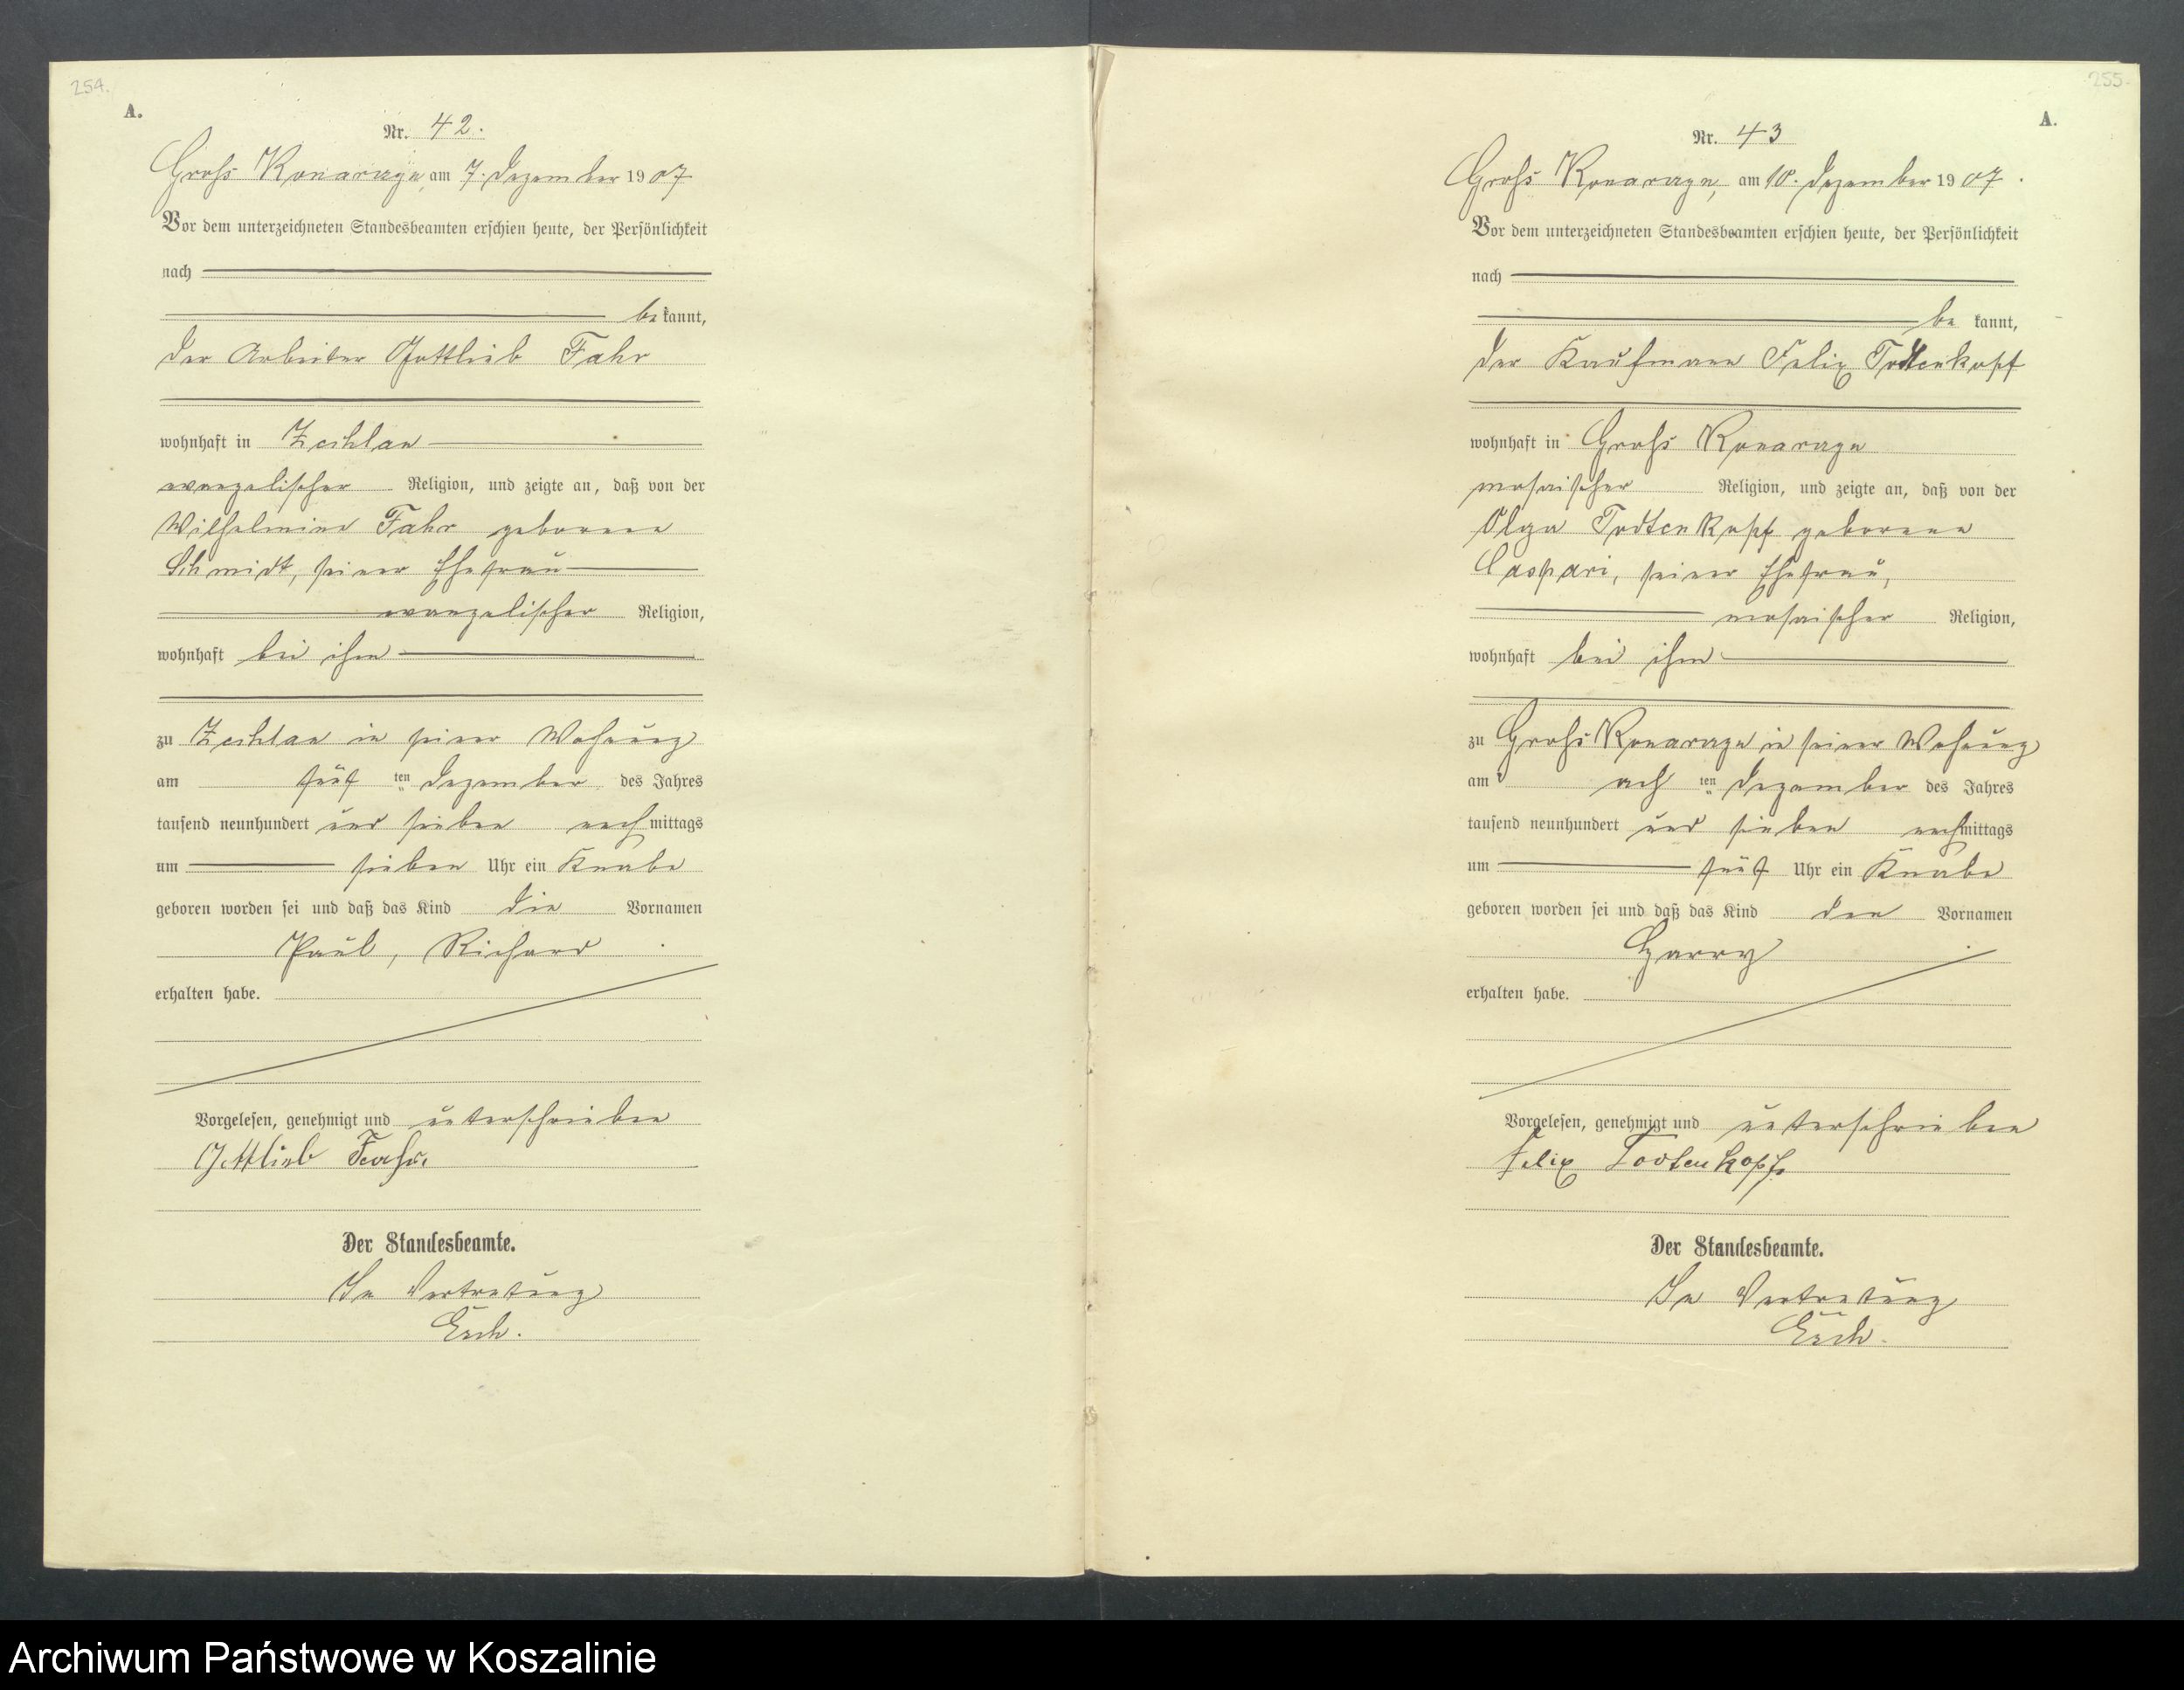 254.
A.
Nr. 42.
Groß Runarage, am 7. Dezember 1907
Vor dem unterzeichneten Standesbeamten erschien heute, der Persönlichkeit
nach
be kannt,
der Arbeiter Gottlieb Fahr
wohnhaft in
evangelischer Religion, und zeigte an, daß von der
Wilhelmine Fahr geborene
Schmidt, seiner Ehefrau
evangelischer Religion,
wohnhaft bei ihm
zu in seiner Wohnung
am fünf ten Dezember des Jahres
tausend neunhundert und sieben nach mittags
um sieben Uhr ein Knabe
geboren worden sei und daß das Kind die Vornamen
Paul, Richard
erhalten habe.
Vorgelesen, genehmigt und unterschrieben
Gottlieb Fahr.
Der Standesbeamte.
In Vertretung
255.
A.
Nr. 43
Groß Runarage, am 10. Dezember 1907.
Vor dem unterzeichneten Standesbeamten erschien heute, der Persönlichkeit
nach
be kannt,
der Kaufmann Felix Todtenkopf
wohnhaft in Groß Runarage
mosaischer Religion, und zeigte an, daß von der
Olga Todtenkopf geborene
Caspari, seiner Ehefrau,
mosaischer Religion,
wohnhaft bei ihm
zu Groß Runarage in seiner Wohnung
am ach ten Dezember des Jahres
tausend neunhundert und sieben nachmittags
um fünf Uhr ein Knabe
geboren worden sei und daß das Kind den Vornamen
Harry
erhalten habe.
Vorgelesen, genehmigt und unterschrieben
Felix Todtenkopf
Der Standesbeamte.
In Vertretung
Archiwum Państwowe w Koszalinie